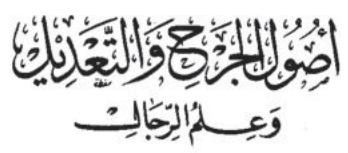 أُصُولُ الجَرْحِ وَالتَّعْدِيلِ
وَعِلْمُ الرِّجَالِ